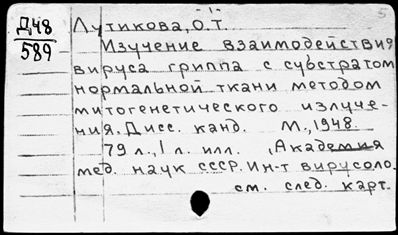 Д48
589
Лутикова, О.Т.
Изучение взаимодействия
вируса гриппа с субстратом
нормальной ткани методом
митогенетического излуче-
ния. Дисс. канд. М., 1948.
79 л., 1 л. илл. (Академия
мед. наук СССР. Ин-т вирусоло.
см. след. карт.
5